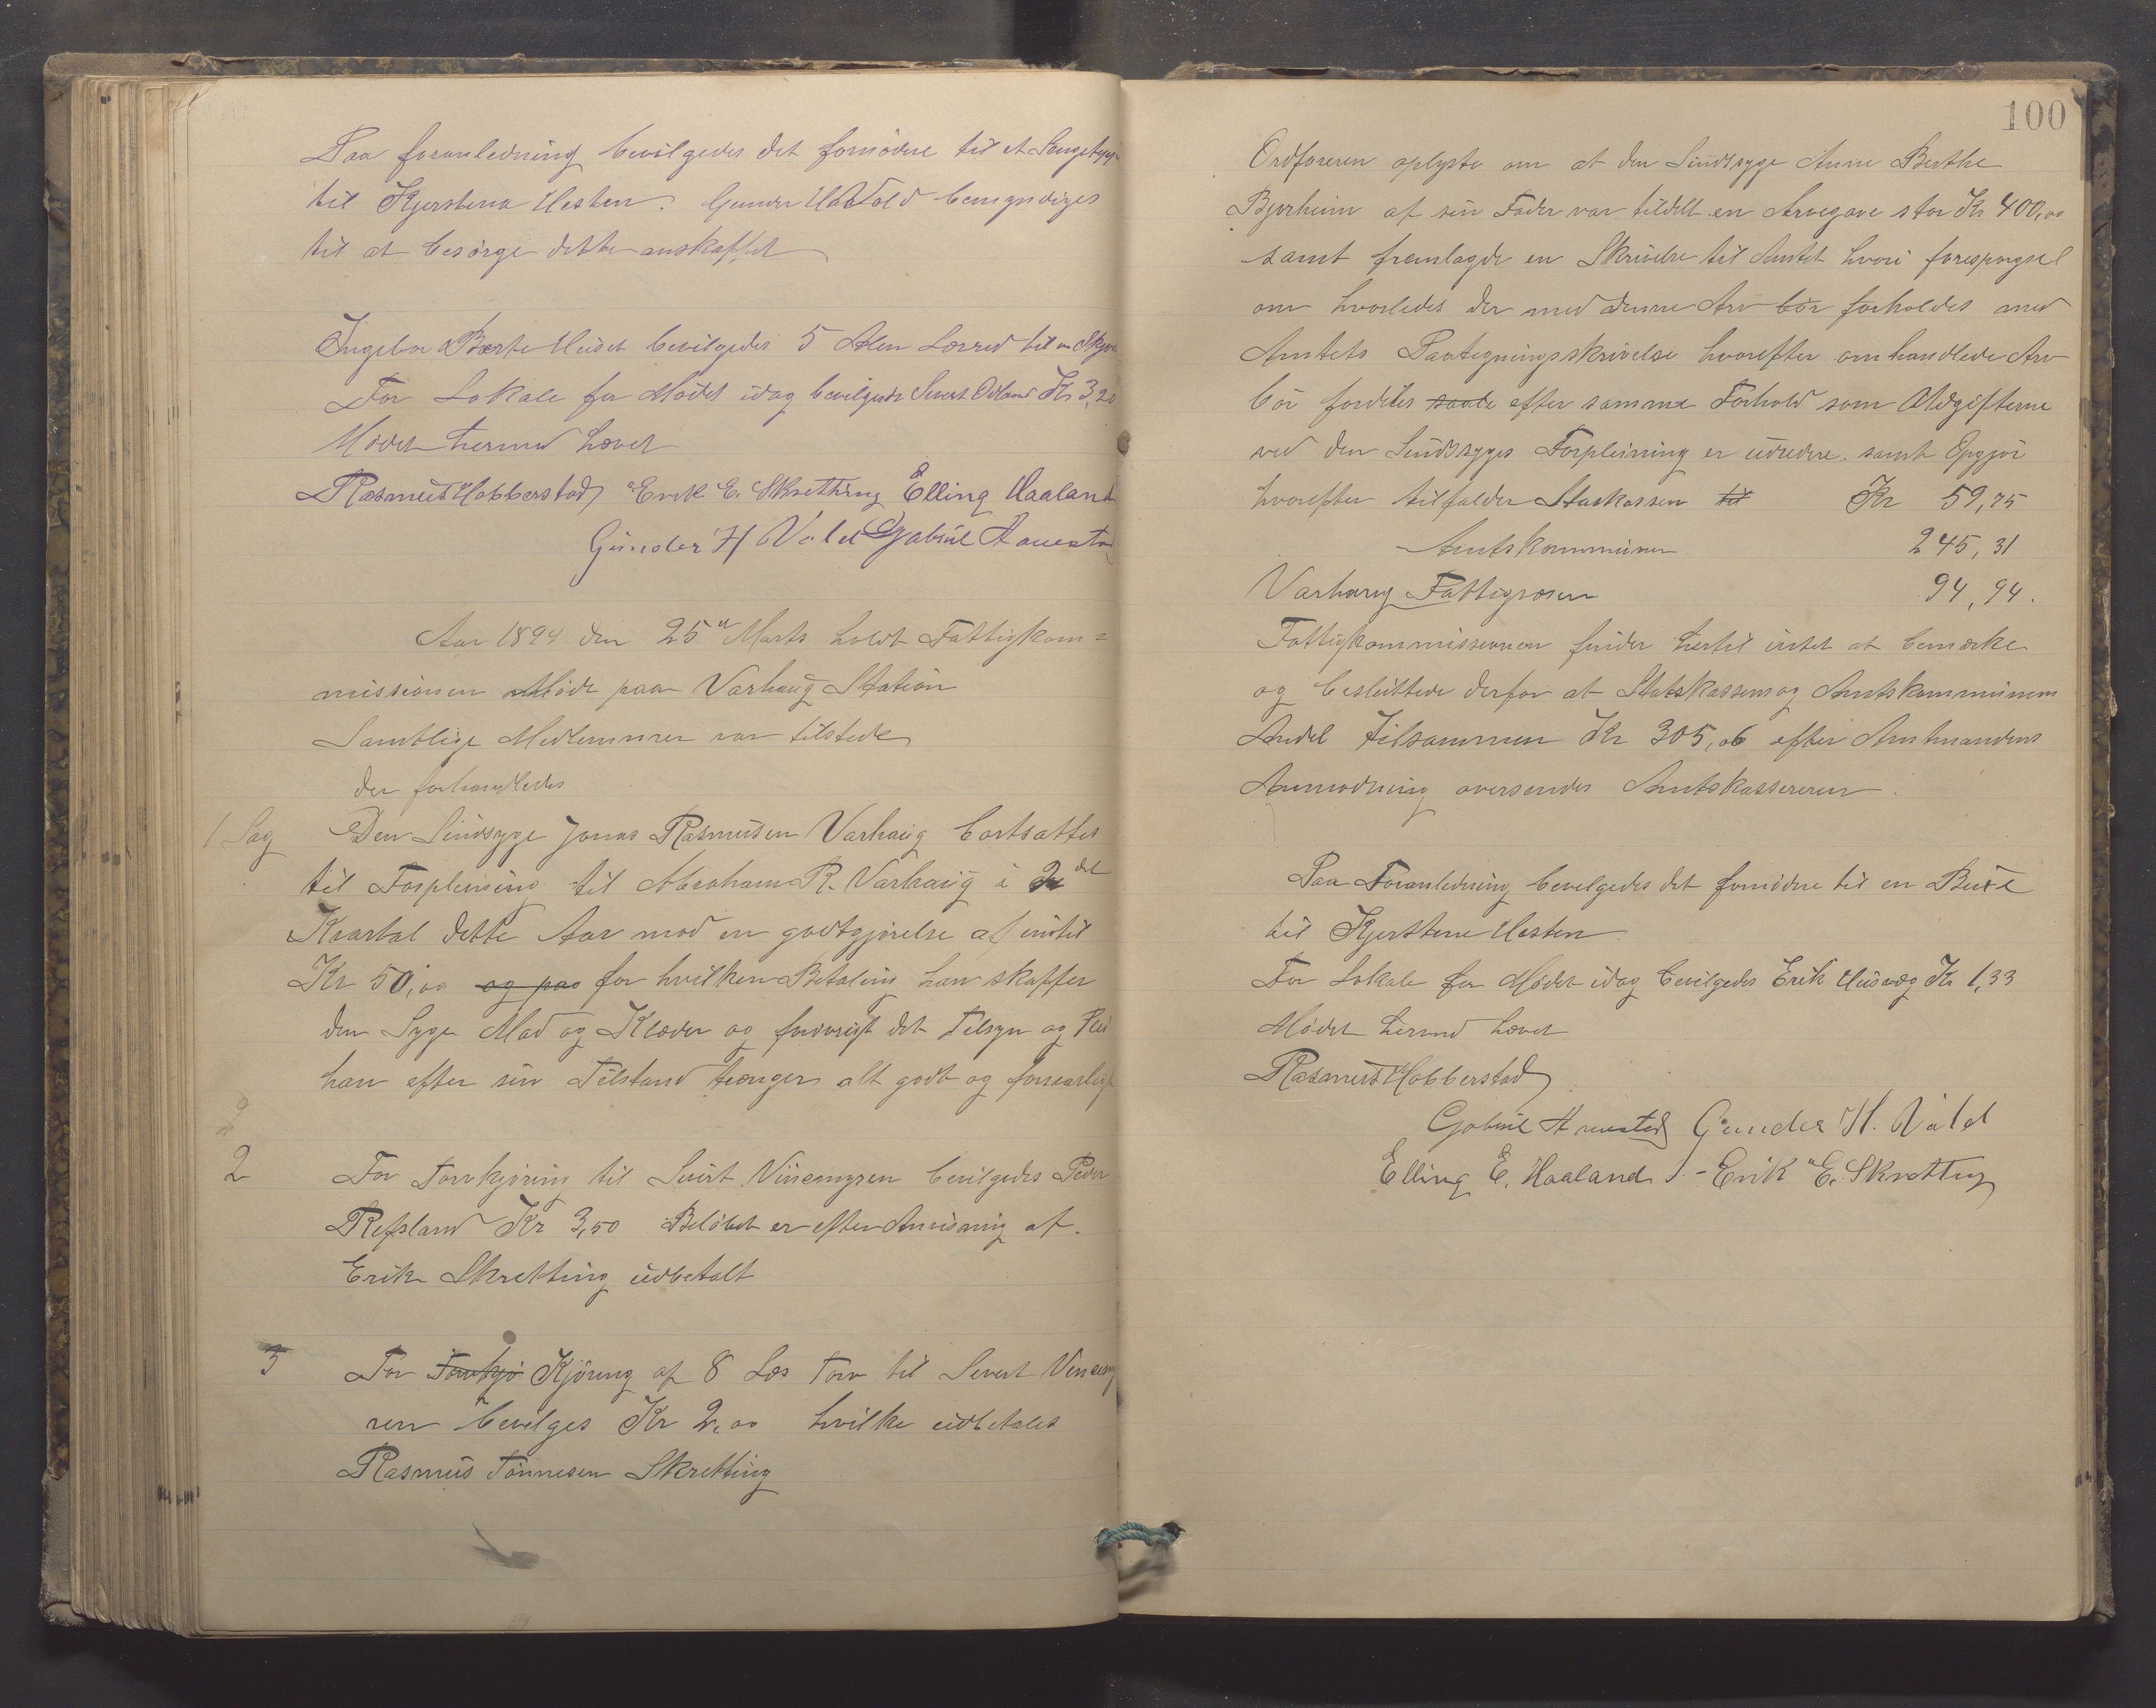 Paa foranledning bevilgedes det fornødne til et
til Kjerstena Hesten. Gunder H Vold bemyndiges
til at besørge dette anskaffet
Ingebor Berte bevilgedes 5 Alen Lærred til en
For Lokale for Mødet idag bevilgedes Sivert Ødland Kr 3,20
Mødet hermed hævet
Rasmus Hobberstad Erik E. Skretting Elling Haaland
Gunder H Vold Gabriel Auestad
Aar 1894 den 25de Marts holdt Fattigkom=
missionen Møde paa Varhaug Station
Samtlige Medlemmer var tilstede
Der forhandledes
1 Sag Den Sindsyge Jonas Rasmusen Varhaug bortsattes
til Forpleining til Abraham R. Varhaug i 2det
Kvartal dette Aar mod en godtgjørelse af indtil
Kr 50,00 og paa for hvilken Betaling han skaffer
den Syge Mad og Klæder og forøvrigt det Tilsyn og Plei
han efter sin Tilstand trænger alt godt og forsvarligt
2 For Torvkjøring til Sivert Vinemyren bevilgedes Peder
Refsland Kr 3,50 Beløbet er efter Anvisning af
Erik Skretting udbetalt
3 For Torvkjø Kjøring af 8 Læs Torv til Sivert Vinemy
ren bevilges Kr 2,00 hvilke udbetales
Rasmus Tønnesen Skretting
100
Ordføreren oplyste om at den Sindssyge Anne Berthe
Bjorheim af sin Fader var tildelt en Arvegave stor Kr 400,00
samt fremlagde en Skrivelse til Amtet hvori forespørgsel
om hvorledes der med denne Arv bør forholdes med
Amtets Paategningsskrivelse hvorefter omhandlede Arv
bør fordeles saale efter samme Forhold som Udgifterne
ved den Sindssyges Forpleining er udredede. samt Opgjør
hvorefter tilfalder Staskassen til Kr 59,75
Amtskommunen 245,31
Varhaug Fattigvæsen 94,94.
Fattigkommissionen finder hertil intet at bemærke
og besluttede derfor at Statskassens og Amtskommunens
Andel tilsammen Kr 305,06 efter Amtmandens
Anmodning oversendes Amtskassereren.
Paa Foranledning bevilgedes det fornødne til en Buxe
til Kjerstene Hesten.
For Lokale for Mødet idag bevilgedes Erik Kr 1,33
Mødet hermed hævet
Rasmus Hobberstad
Gabriel Auestad Gunder H. Vold
Elling E. Haaland Erik E. Skretting